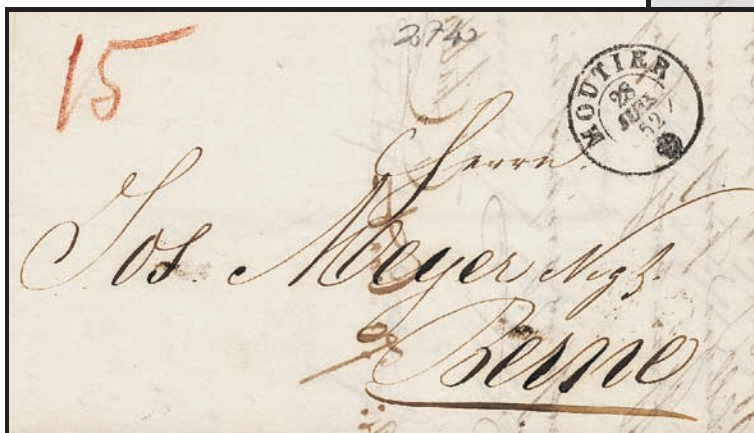 15
274
MOUTIER
28
JUIN
52
Herrn
Jos. Meyer Negt.
Berne